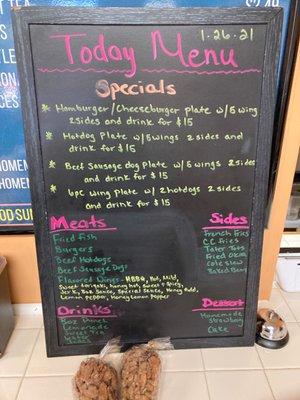 Today Menu
1-26-21
Specials
* Hamburger/Cheeseburger Plate w/5 wing
2 sides and drink for $15
* Hotdog Plate w/5 wings 2 sides and
drink for $15
* Beef Sausage dog Plate w/5 wings 2 sides
and drink for $15
* 6pc wing Plate w/ 2 hotdogs 2 sides
and drink for $15
Meats
Fried fish
Burgers
Beef Hotdogs
Beef Sausage Dogs
Flavored Wings - BBQ, Hot, Mild,
Sweet teriyaki, honey hot, sweet & spicy,
Jerk, Special Sauce, Honey Gold,
Lemon pepper, honey lemon pepper
Sides
French Fries
CC Fries
Tater Tots
Fried Okra
Cole slaw
Baked Beans
Drinks
Lemonade
Sweet Tea
Water
Dessert
Homemade
Strawberry
Cake
HOME
HOME
FOOD SUB